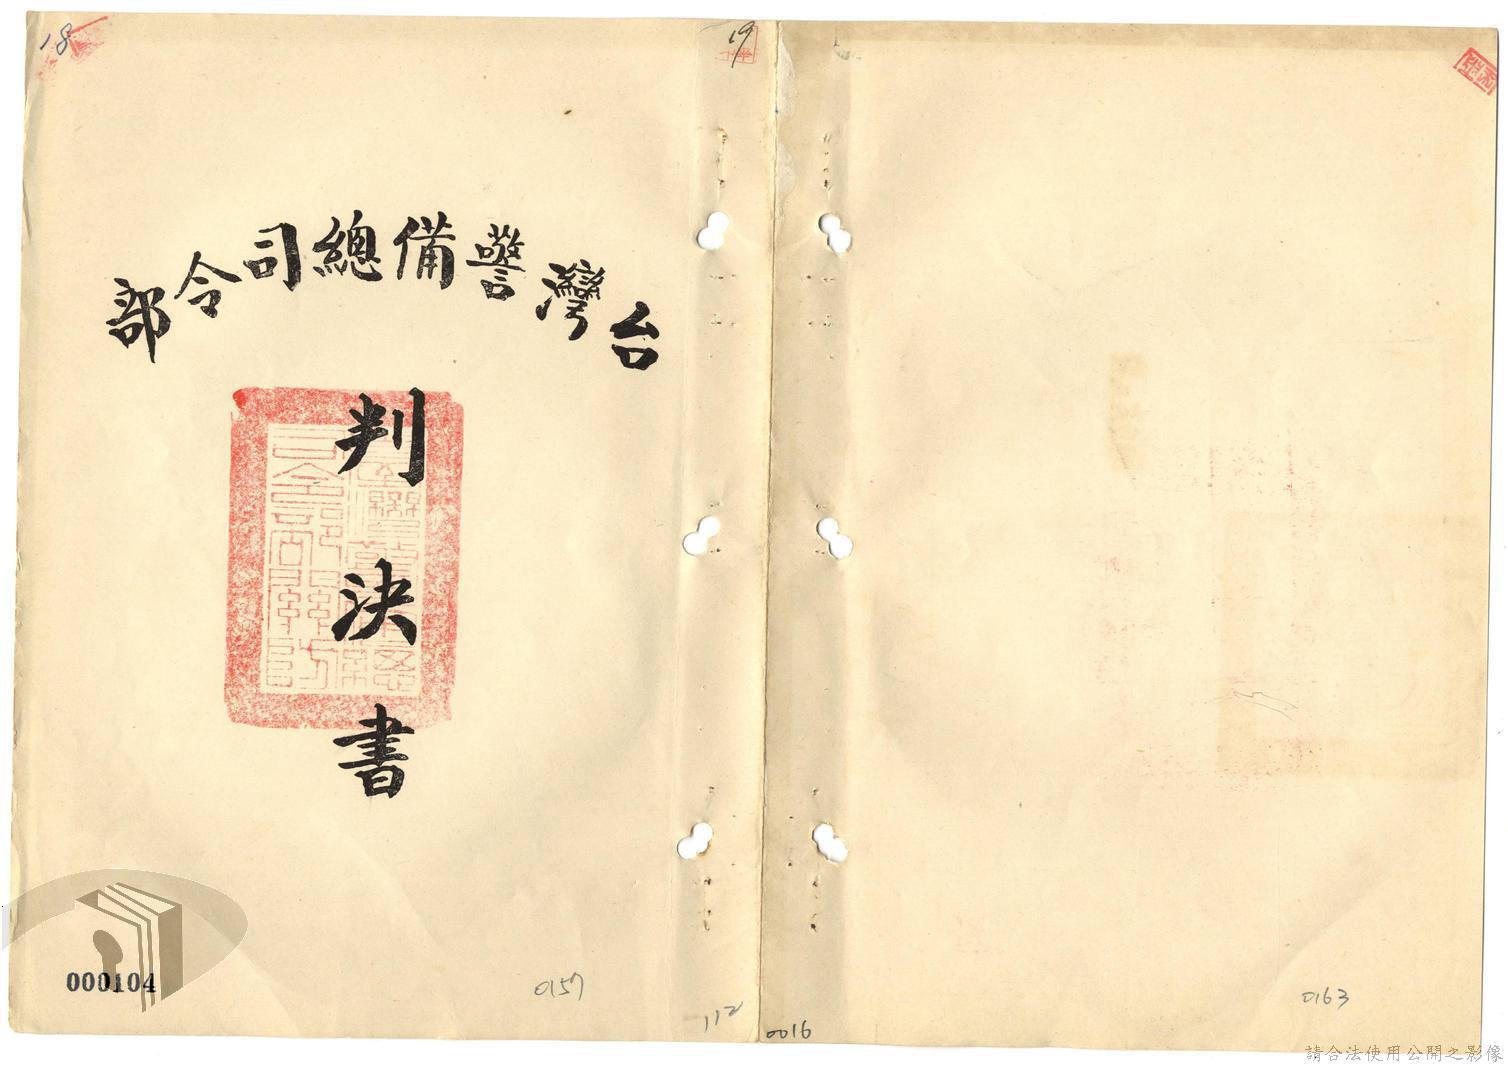 18
19
台灣警備總司令部
判決書
000104
0157
112
0016
0163
請合法使用公開之影像